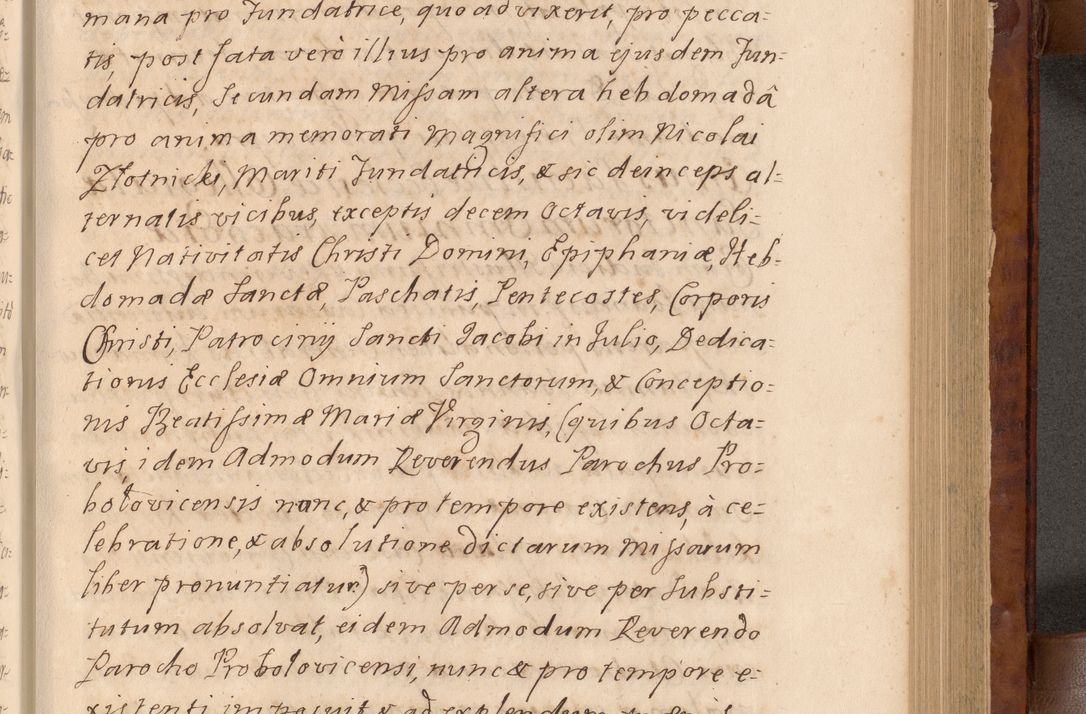 mana pro Fundatrice, quoad vixerit, pro pecca=
tis, post fata verò illius pro anima ejusdem Fun=
datricis, Secundam Missam altera hebdomadâ
pro anima memorati Magnifici olim Nicolai
Złotnicki, Mariti Fundatricis, & sic deinceps al=
ternatis vicibus, exceptis decem Octavis, videli=
cet Nativitatis Christi Domini, Epiphaniæ, Heb=
domadæ Sanctæ, Paschatis, Pentecostes, Corporis
Christi, Patrocinij Sancti Jacobi in Julio, Dedica=
tionis Ecclesiæ Omnium Sanctorum, & Conceptio=
nis Beatissimæ Mariæ Virginis, (quibus Octa=
vis, idem Admodum Reverendus Parochus Pro=
bołovicensis nunc, & pro tempore existens, à ce=
lebratione, & absolutione dictarum Missarum
liber pronuntiatur) sive per se, sive per Substi=
tutum absolvat, eidem Admodum Reverendo
Parocho Probolovicensi, nunc & pro tempore e=
xistenti imposuit & ad explendum